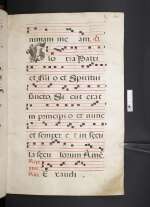 nimam me am
Glo ria Patri
et fili o et Spiritui
sancto Sic ut erat
in principi o et nunc
et semper et in secu
la secu lorum Ame
Exaudi